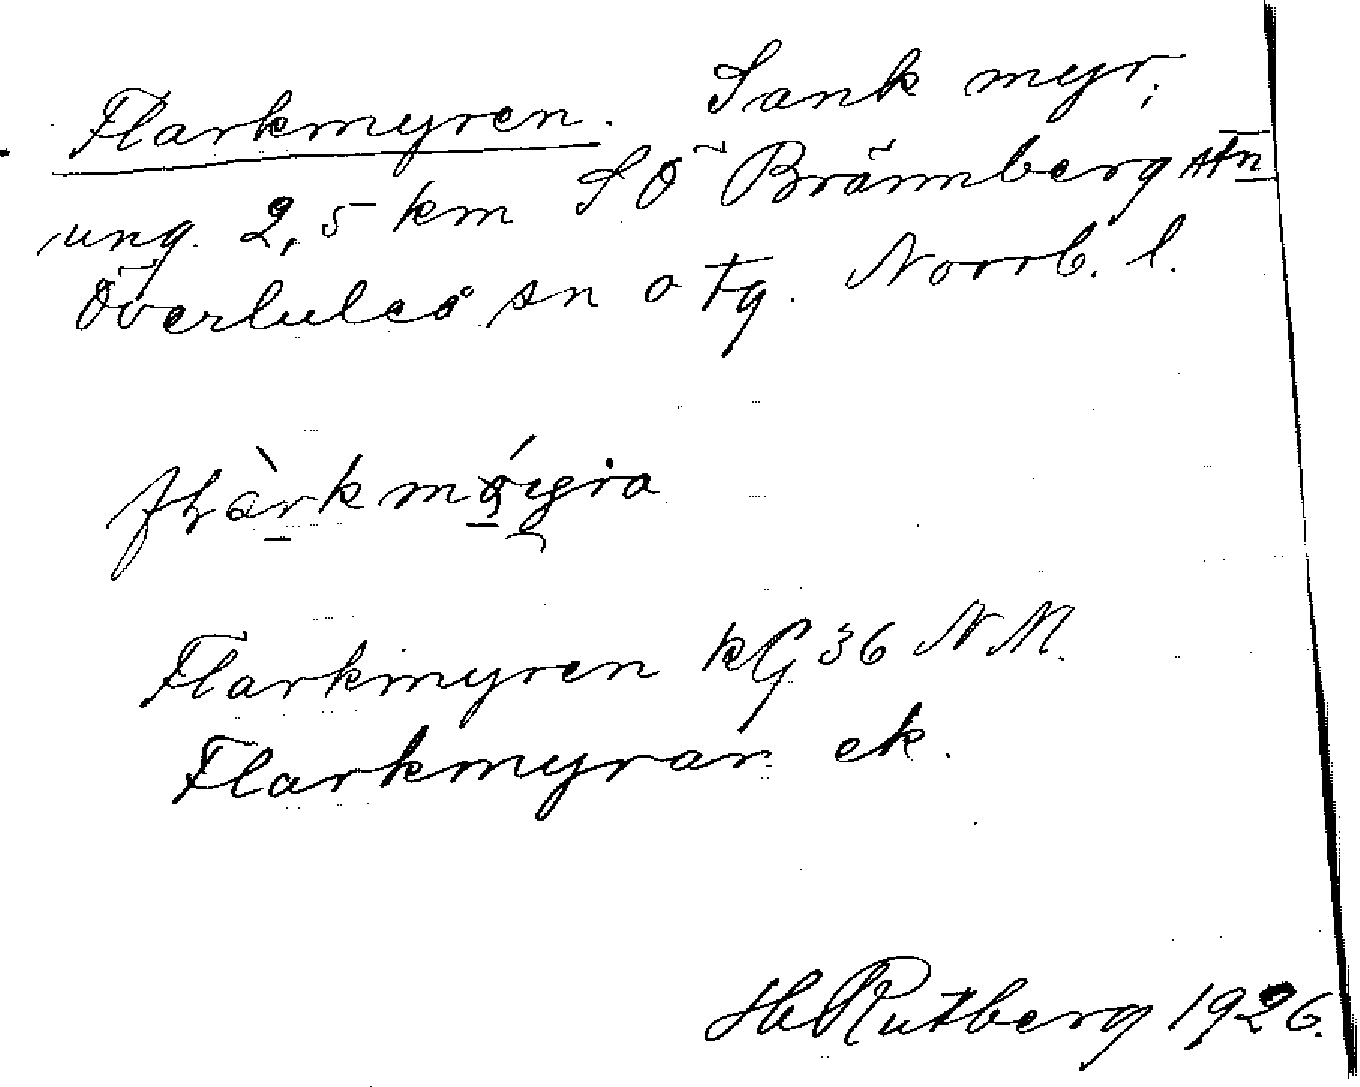 Flarkmyren. Sank myr;
ung. 2,5 km SÖ Brännberg stn
Överluleå sn o tg. Norrb. l.
Flarkmyren kG 36 NM.
Flarkmyrar ek.
H Rutberg 1926.